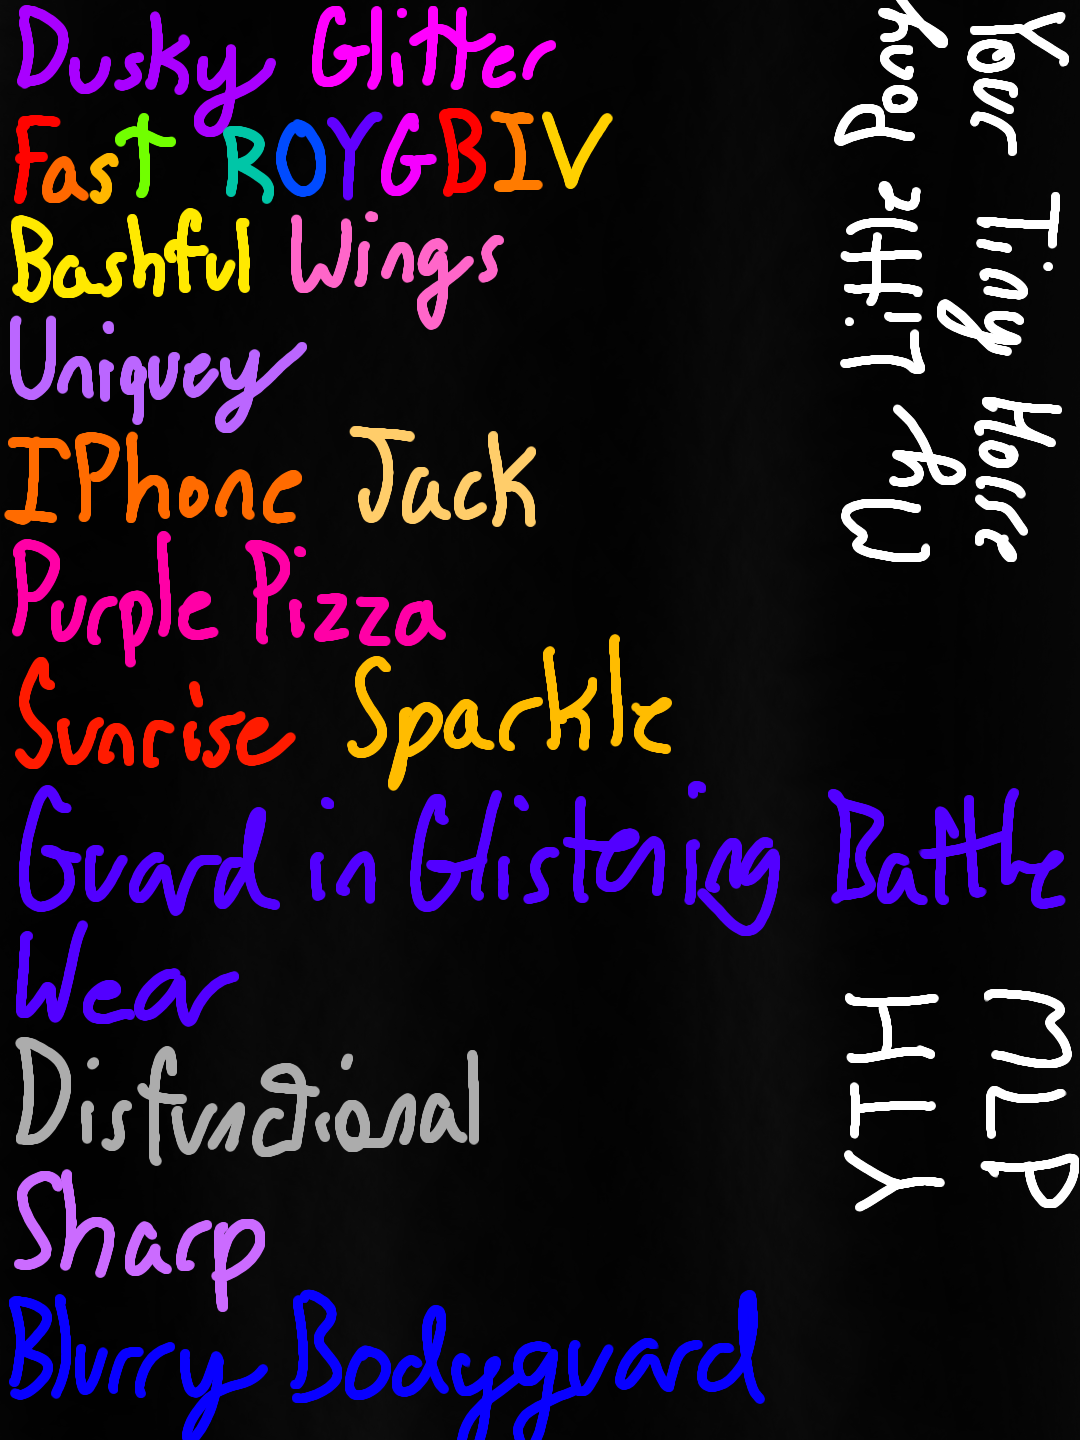 Dusky Glitter
Fast ROYGBIV
Bashful Wings
Uniquey
IPhone Jack
Purple Pizza
Sunrise Sparkle
Guard in Glistening Battle
Wear
Disfunctional
Sharp
Blurry Bodyguard
Your Tiny Horse
My Little Pony
MLP
YTH